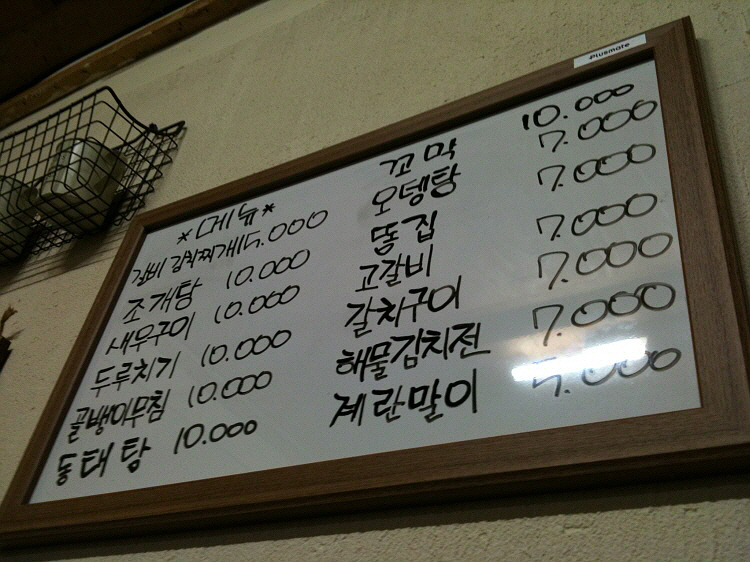 Plusmate
*메뉴*
갈비 김치찌개 15.000
조개탕 10.000
새우구이 10.000
두루치기 10.000
골뱅이무침 10.000
동태탕 10.000
꼬막 10.000
오뎅탕 7.000
똥집 7.000
고갈비 7.000
갈치구이 7.000
해물김치전 7.000
계란말이 5.000